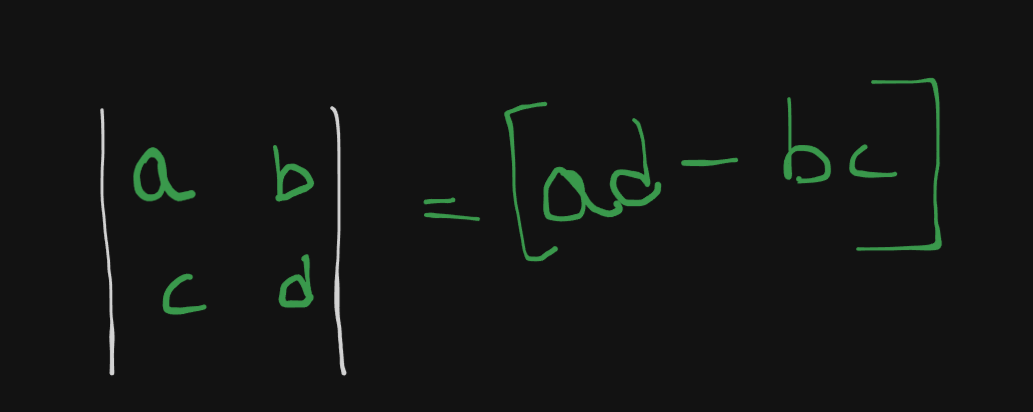 | a b |
| c d | = [ad - bc]